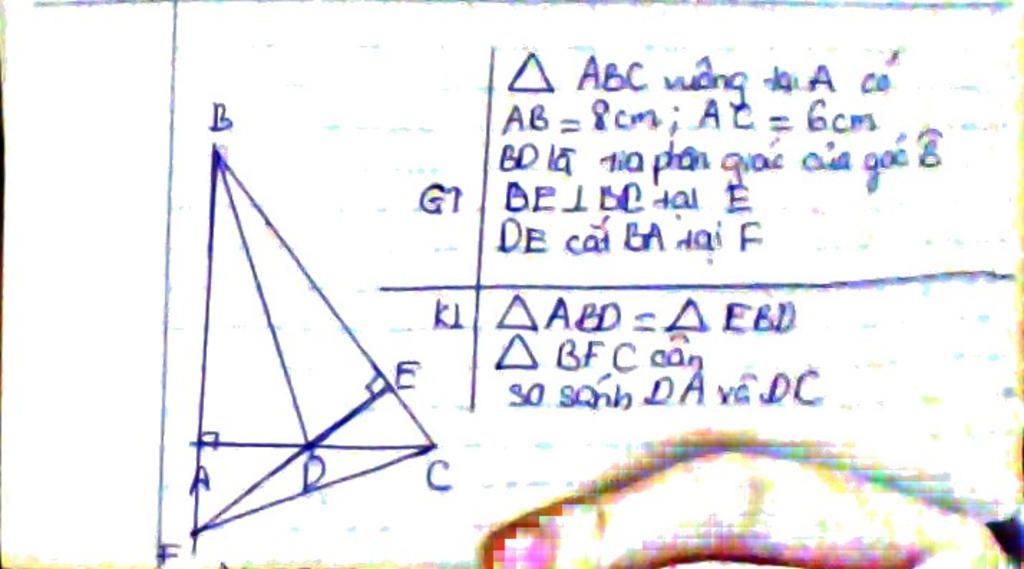 B
△ ABC vuông tại A có
AB = 8cm; AC = 6cm
BD là tia phân giác của góc B̂
GT
DE ⊥ BC tại E
DE cắt BA tại F
KL
△ ABD = △ EBD
△ BFC cân
so sánh DA và DC
E
A
D
C
F